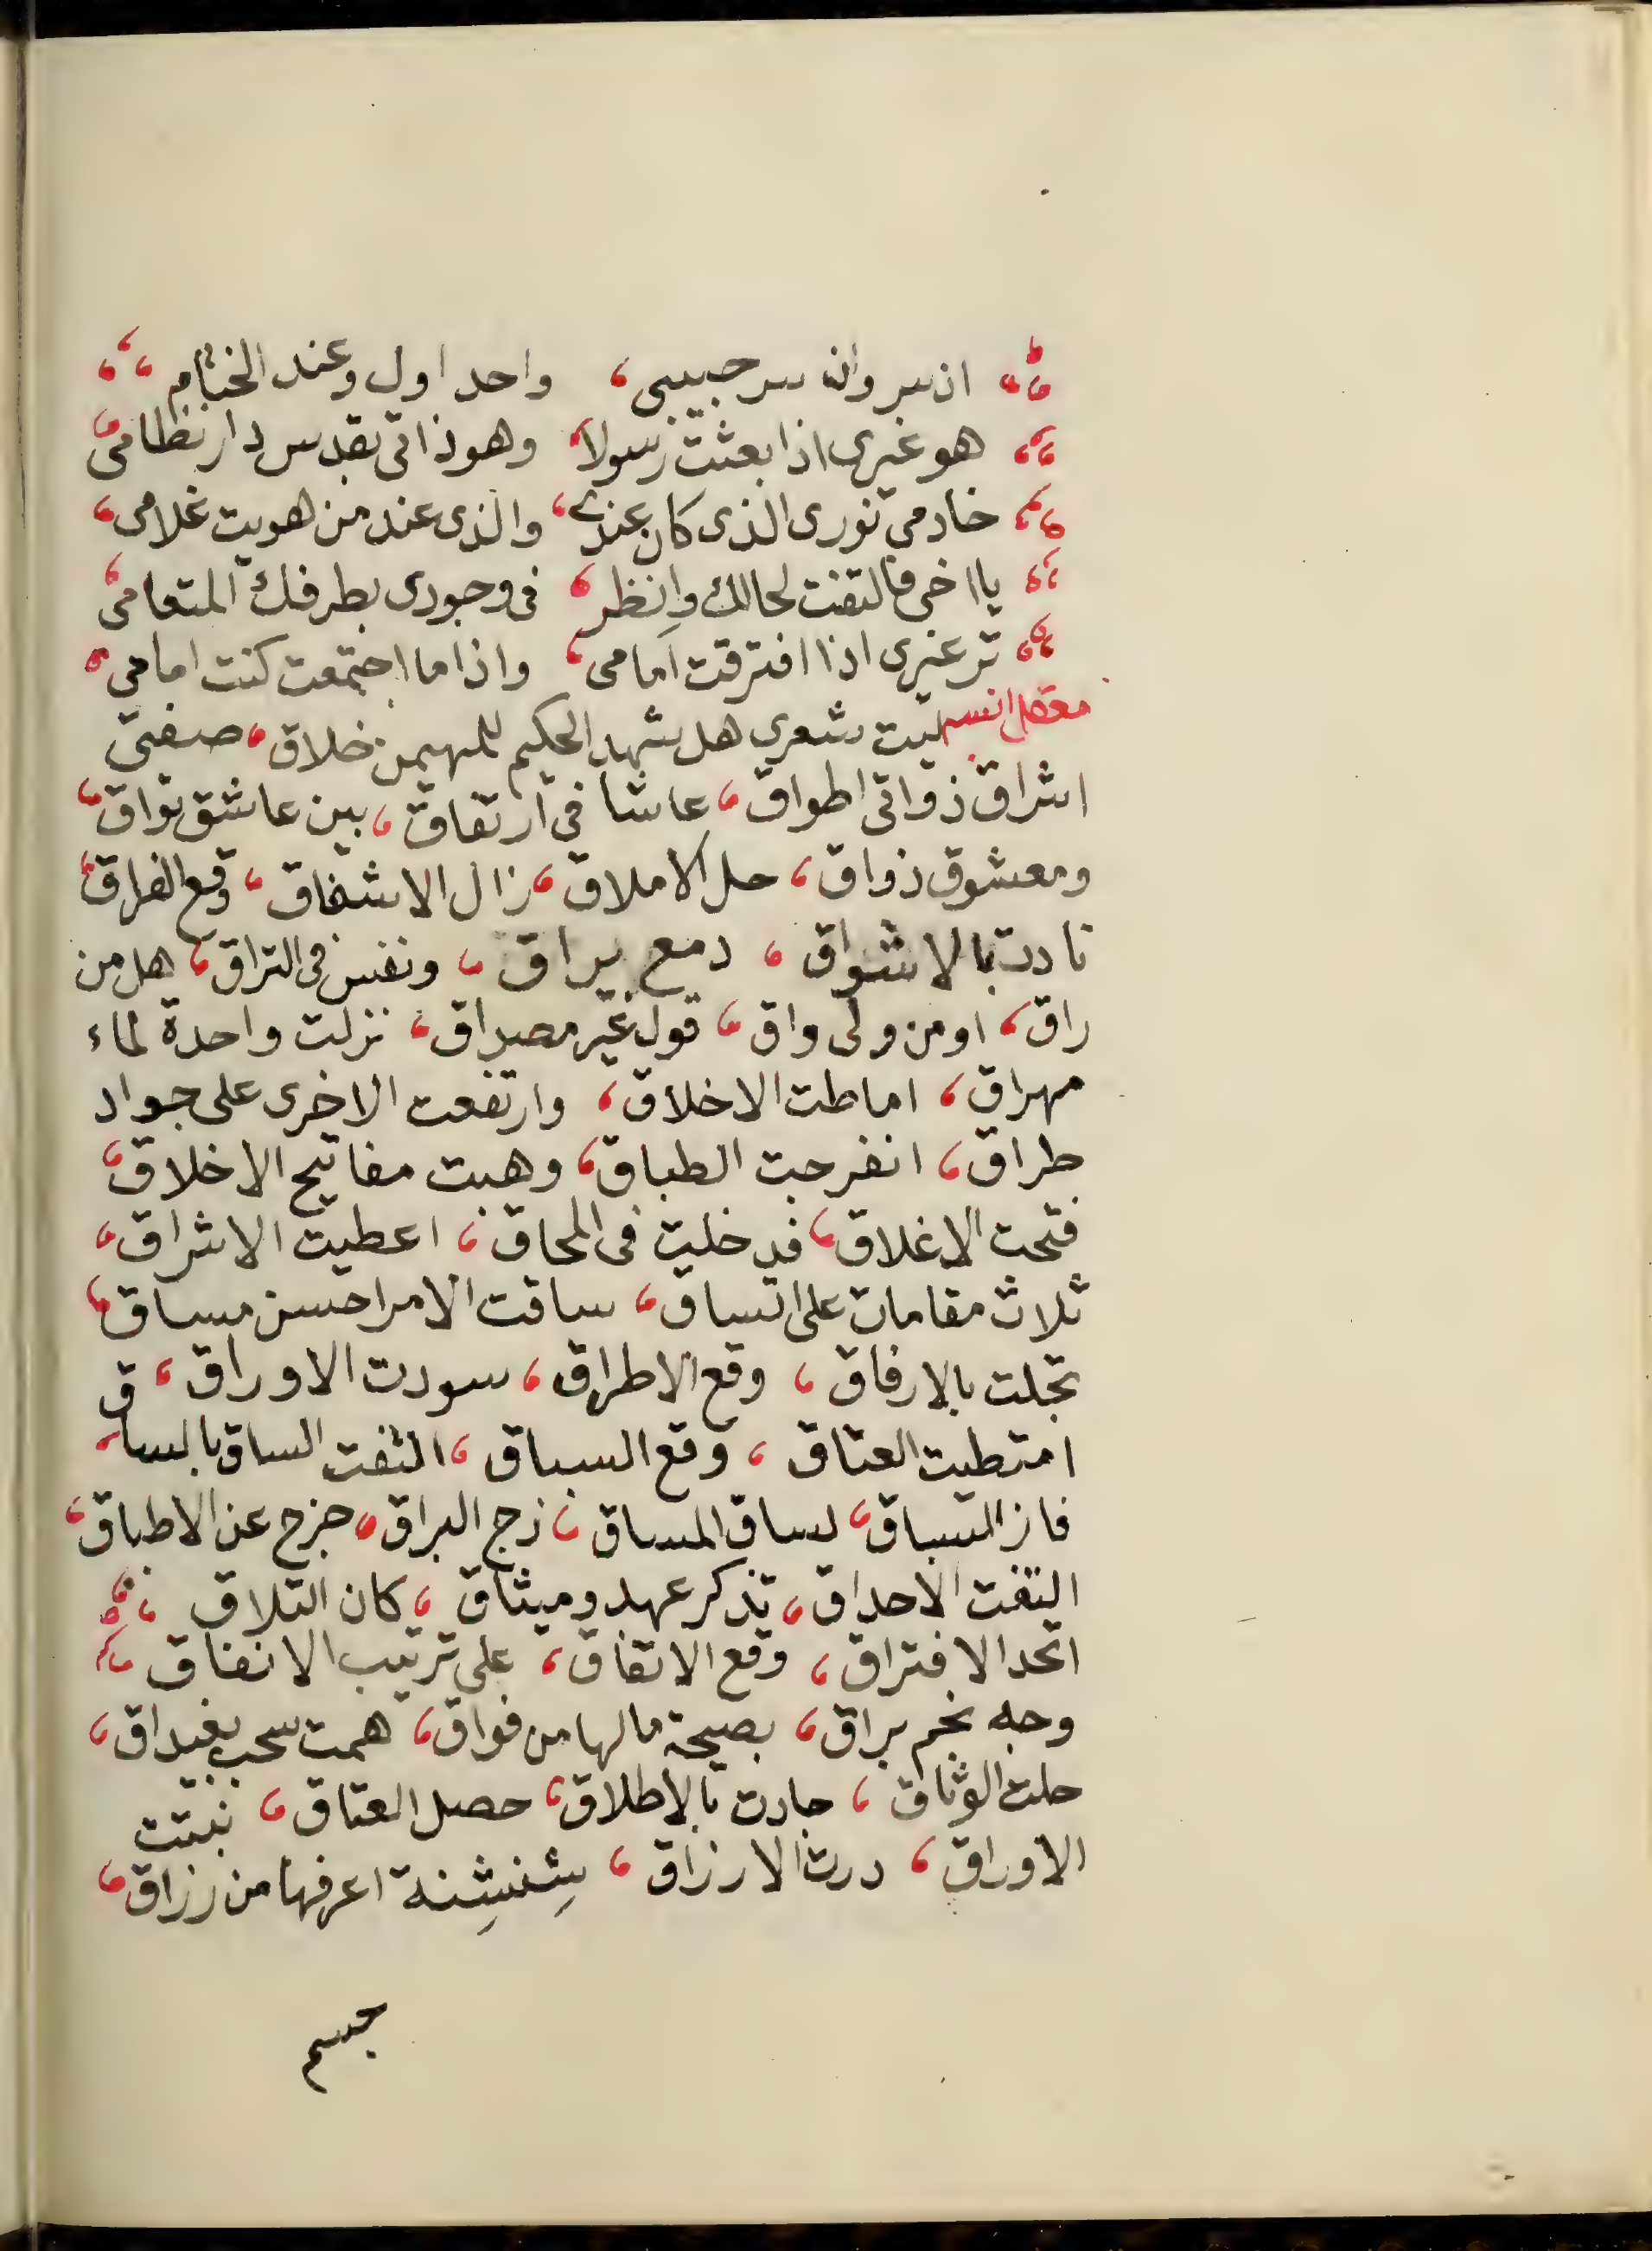 ان سر وان سر حبيبى، واحد اول وعند الختام
هو غيرى اذا بعثت رسولا، وهو ذاتى بقدس دار نظامى
خادمى نورى الذى كان عندى، والذى عند من هويت غلامى،
يا اخى فالتفت لحالك وانظر، فى وجودى بطرفك المتعامى
تر غيرى اذا افترقت امامى، واذا ما اجتمعت كنت امامى
معقل انسه ليت شعرى هل شهد الحكيم للمهيمن خلاق، صفتى
اشراق ذواتى اطواق، عاشا فى ارتفاق، بين عاشق تواق،
ومعشوق ذواق، حل الاملاق، زال الاشفاق، وقع الفراق،
نادت بالاشواق، دمع يراق، ونفس فى التراق، هل من
راق، او من ولى واق، قول غير مصداق، نزلت واحدة لماء
مهراق، اماطت الاخلاق، وارتفعت الاخرى على جواد
طراق، انفرجت الطباق، وهبت مفاتيح الاخلاق،
فتحت الاغلاق، فدخلت فى المحاق، اعطيت الاشراق،
ثلاث مقامات على اتساق، ساقت الامر احسن مساق،
تجلت بالارفاق، وقع الاطراق، سودت الاوراق،
امتطيت العتاق، وقع السباق، التفت الساق بالساق
فاز السباق، لساق المساق، زج البراق، خرج عن الاطباق،
التفت الاحداق، تذكر عهد وميثاق، كان التلاق
اتحد الافتراق، وقع الاتفاق، على ترتيب الانفاق
وجه نجم براق، بصيحة مالها من فواق، همت سحب بغيداق،
حلت الوثاق، جادت بالاطلاق، حصل العتاق، نبتت
الاوراق، درت الارزاق، شنشنة اعرفها من رزاق،
جسم